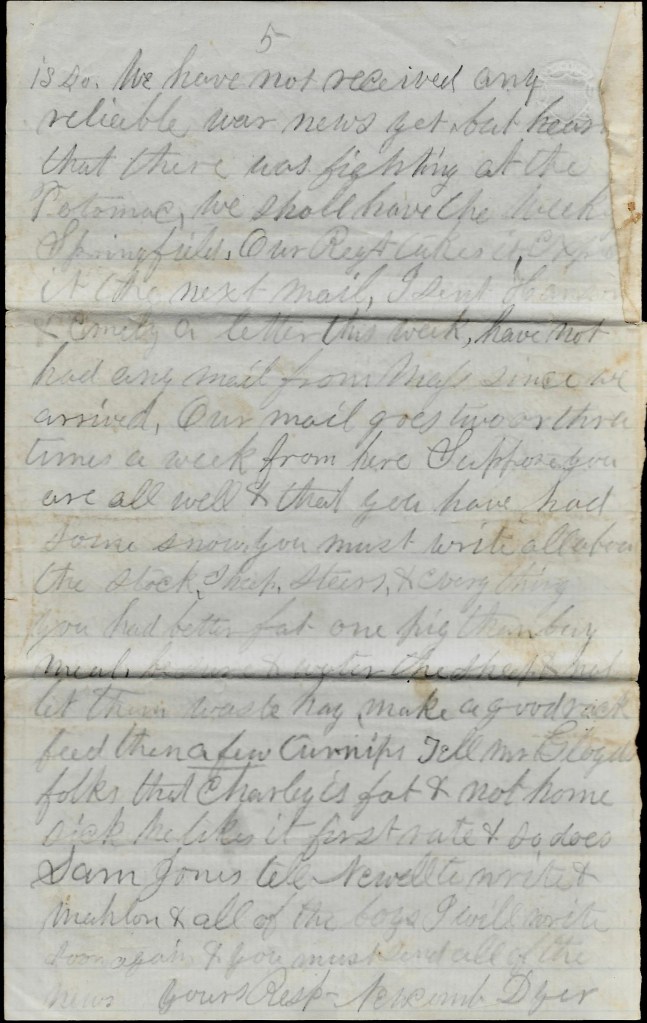 5
is so. We have not received any
reliable war news yet but hear
that there was fighting at the
Potomac, We shall have the Week
Springfield. Our Regt takes it,
it the next mail, I sent
& Emely a letter this week, have not
had any mail from Mass since we
arrived, Our mail goes two or three
times a week from here Suppose you
are all well & that you have had
some snow, you must write all about
the stock, sheep, steers, & everything
you had better fat one pig than buy
meat, be sure & water the sheep &
let them waste hay, make a good rack
feed then a few turnips Tell Mr
folks that Charley is fat & not home
sick he likes it first rate & so does
Sam Jones tell Newell to write &
Mahlon & all of the boys I will write
soon again & you must send all of the
news yours Resp- Newcomb Dyer